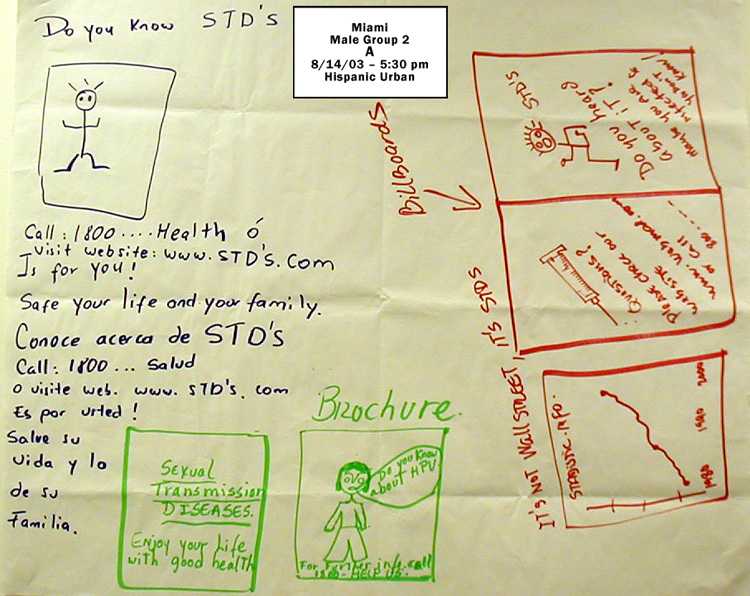 Do you know STD's
Miami
Male Group 2
A
8/14/03 – 5:30 pm
Hispanic Urban
Call: 1800....Health ó
Visit website: www.STD's.com
Is for you!
Safe your life and your family.
Conoce acerca de STD's
Call: 1800... Salud
o visite web. www.STD's.com
Es por usted!
Salve su
vida y la
de su
Familia.
Billboards
STD'S
Do you heard
about it?
Maybe you are
infected &
ya don't
know!
Questions?
Please check our
web site
or call
800-....
It's not Wall Street, it's STDs
Statistic info.
1980
1990
2000
Sexual
Transmission
DISEASES.
Enjoy your Life
with good health
Brochure.
Do you know
about HPV
For further info. call
1800-HELP US.